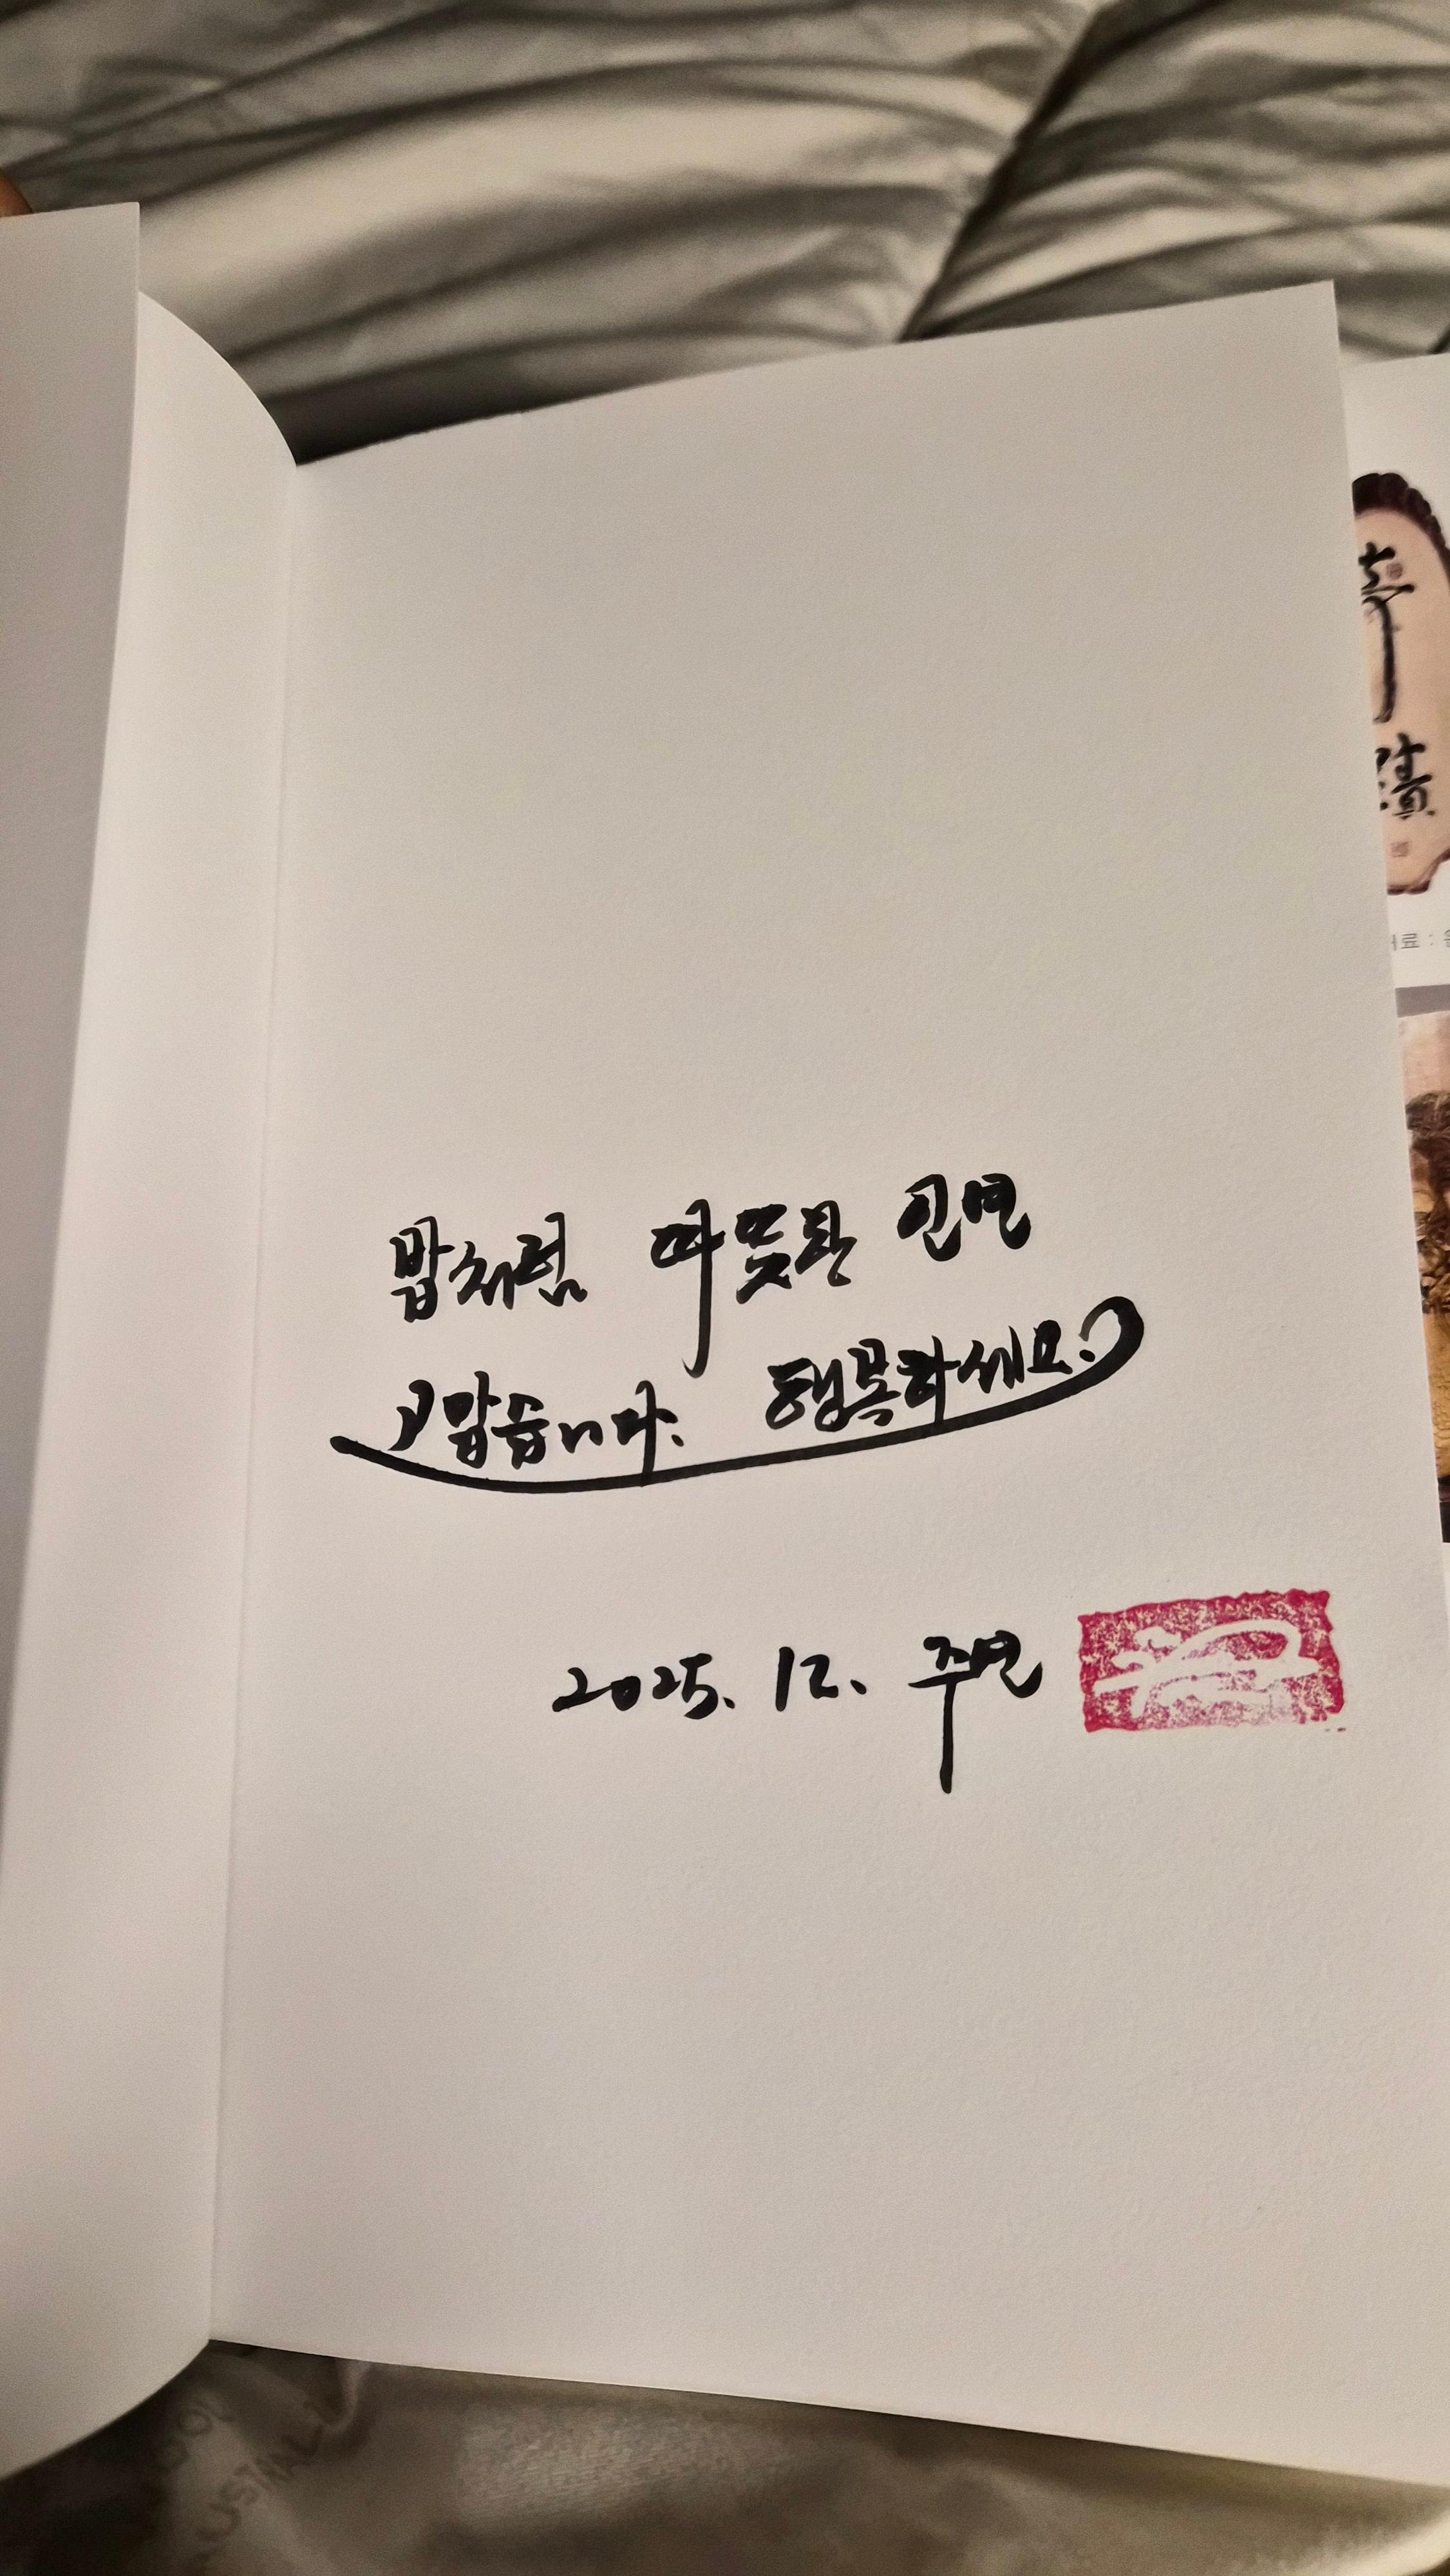 밥처럼 따뜻한 인연
고맙습니다. 행복하세요:)
2025. 12. 주연